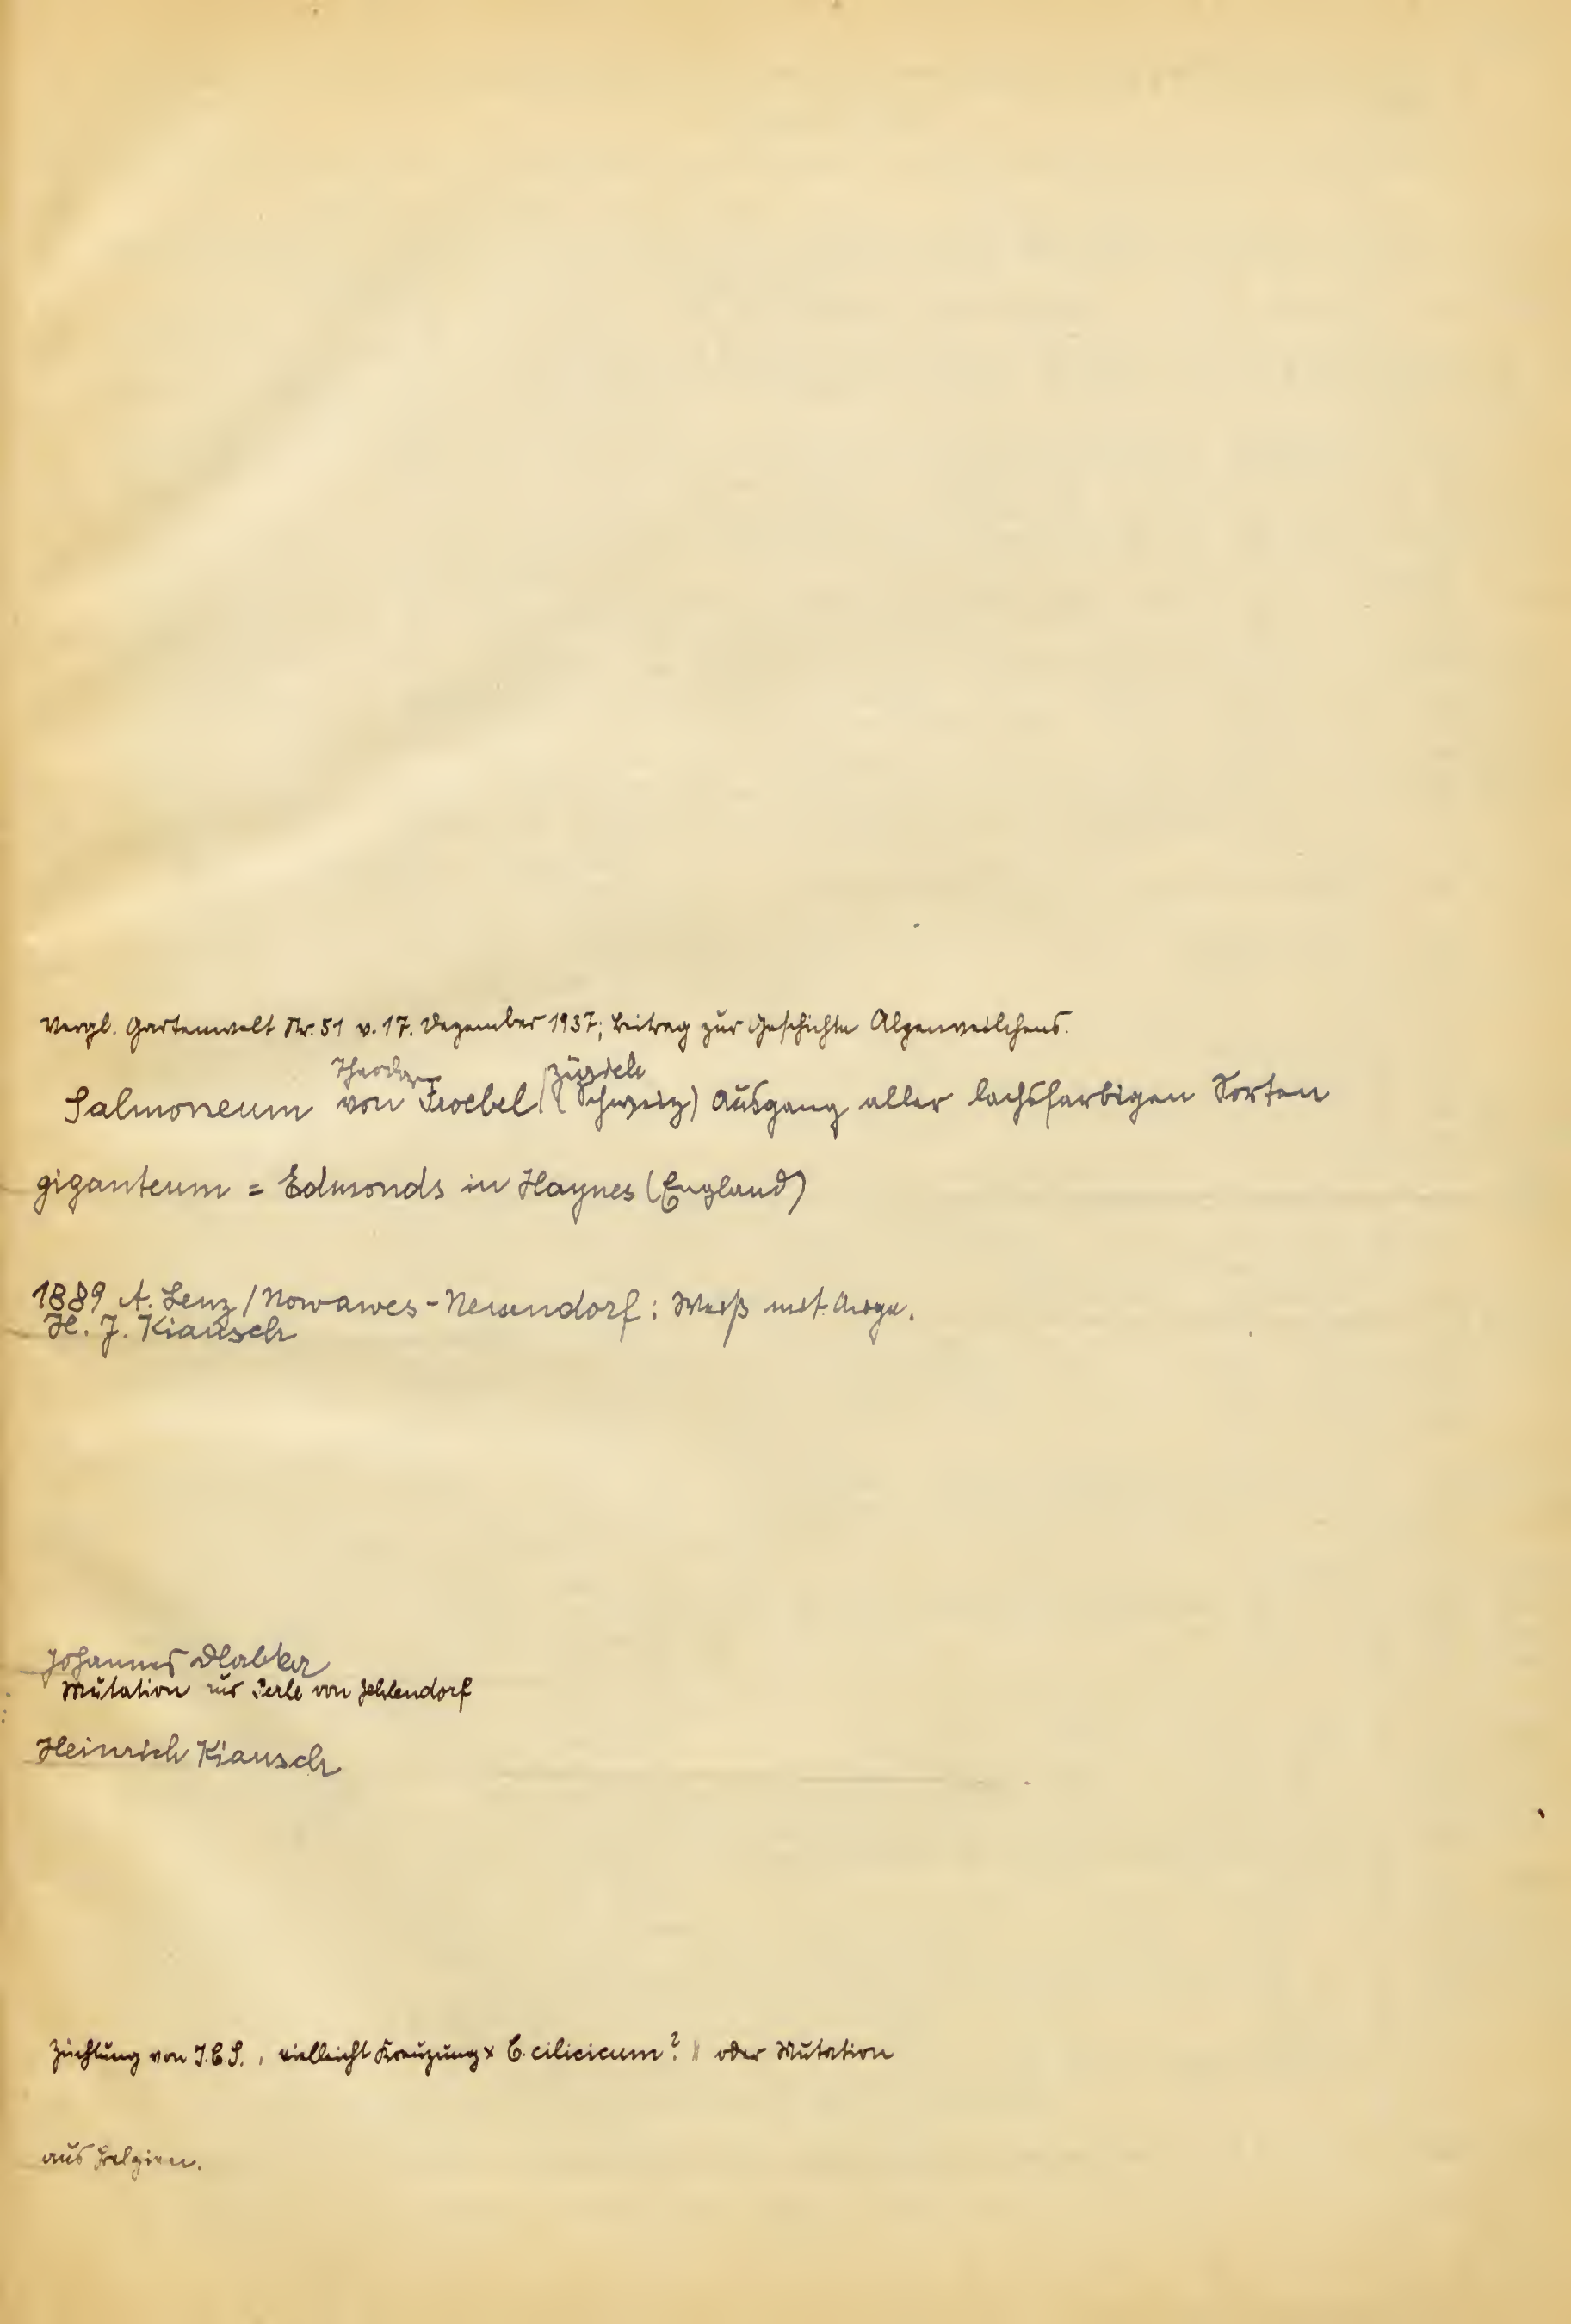 Vergl. Gartenwelt Nr. 51 v. 17. Dezember 1937; Beitrag zur Geschichte Alpenveilchens.
Theodor Zürich
Salmoneum von Froebel (Schweiz) Ausgang aller lachsfarbigen Sorten
giganteum = Edmonds in Haynes (England)
1889 A. Lenz / Nowawes-Neuendorf: Weiß mit Auge.
H. J. Kiausch
Johannes
Mutation aus Perle von Zehlendorf
Heinrich Kiausch
Züchtung von J.C.S., vielleicht Kreuzung x C. cilicicum? oder Mutation
aus Belgien.